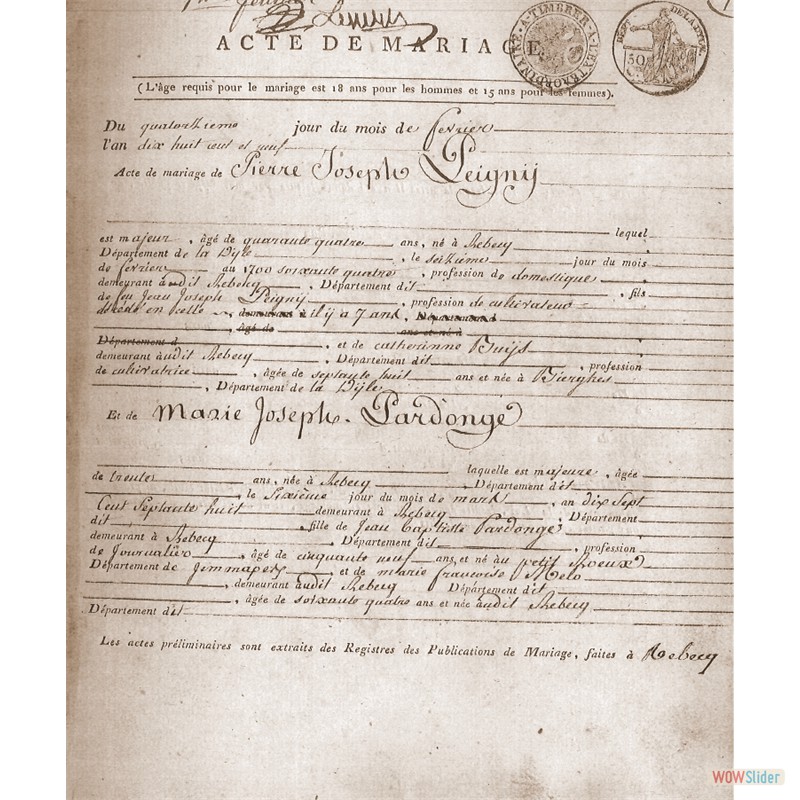 ACTE DE MARIAGE.
A TIMBRER A L'EXTRAORDINAIRE
DEPT DE LA DYLE
50
(L'âge requis pour le mariage est 18 ans pour les hommes et 15 ans pour les femmes).
Du quatorzieme jour du mois de fevrier
l'an dix huit cent et neuf
Acte de mariage de Pierre Joseph Peignij
lequel
est majeur, âgé de quarante quatre ans, né à Rebecq
Département de la Dyle, le seizieme jour du mois
de fevrier au 1700 soixante quatre, profession de domestique
demeurant audit Rebecq, Département dit, fils
de feu Jean Joseph Peignij, profession de cultivateur
décédé en celle demeurant à il ij a 7 ans, Département
, âgé de ans et né à
Département d , et de catherinne Buijs
demeurant audit Rebecq, Département dit, profession
de cultivatrice, âgée de septante huit ans et née à Bierghes
, Département de la Dijle
Et de Marie Joseph Pardonge
laquelle est majeure, âgée
de trente ans, née à Rebecq, Département dit
, le sixième jour du mois de mars, an dix Sept
Cent Septante huit demeurant à Rebecq, Département
dit, fille de Jean Baptiste Pardonge
demeurant à Rebecq, Département dit, profession
de Journalier, âgé de cinquante neuf ans, et né au petit Roeux
Département de Jemmapes et de marie francoise Melo
, demeurant audit Rebecq Département dit
, âgée de soixante quatre ans et née audit Rebecq
Département dit
Les actes préliminaires sont extraits des Registres des Publications de Mariage, faites à Rebecq
WOWSlider